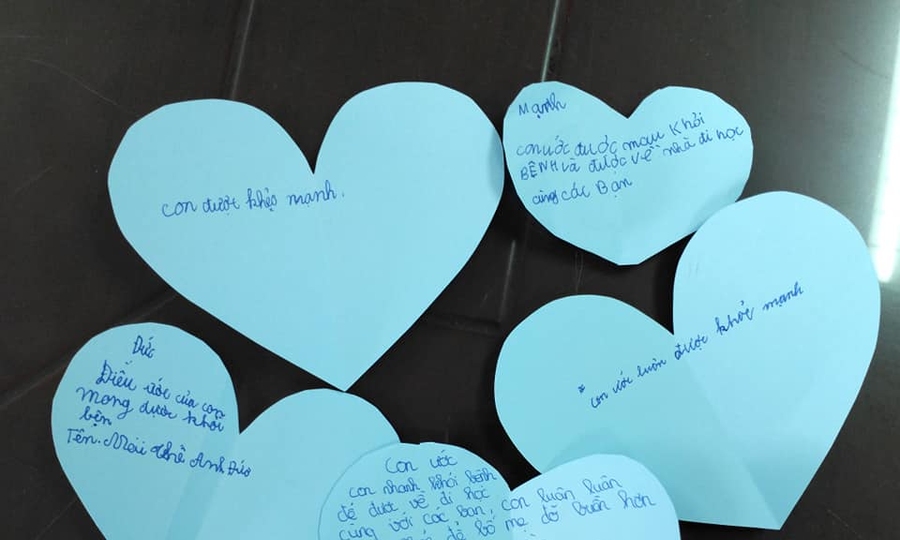 con được khỏe mạnh.
Mạnh
con ước được mau khỏi
BỆNH và được về nhà đi học
cùng các Bạn
* con ước luôn được khỏe mạnh
Đức
Điều ước của con
mong được khỏi
bện
Tên. Mai thế Anh Đức
Con ước
con nhanh khỏi bệnh
để được về đi học
cùng với các bạn, con luôn luôn
để bố mẹ đỡ buồn hơn